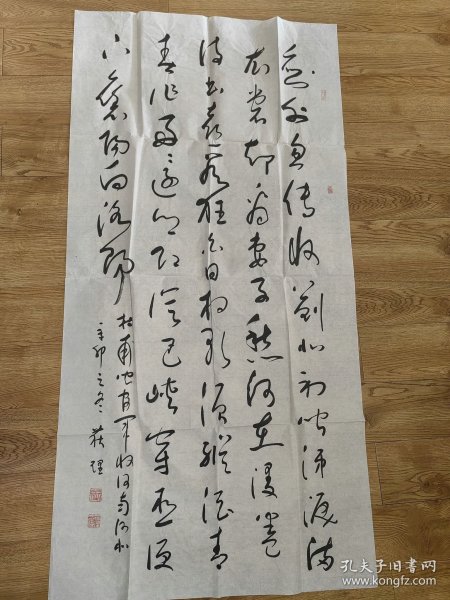 剑外忽传收蓟北初闻涕泪满
衣裳却看妻子愁何在漫卷
诗书喜欲狂白日放歌须纵酒青
春作伴好还乡即从巴峡穿巫便
下襄阳向洛阳
杜甫闻官军收河南河北
辛卯之冬
孔夫子旧书网
www.kongfz.com